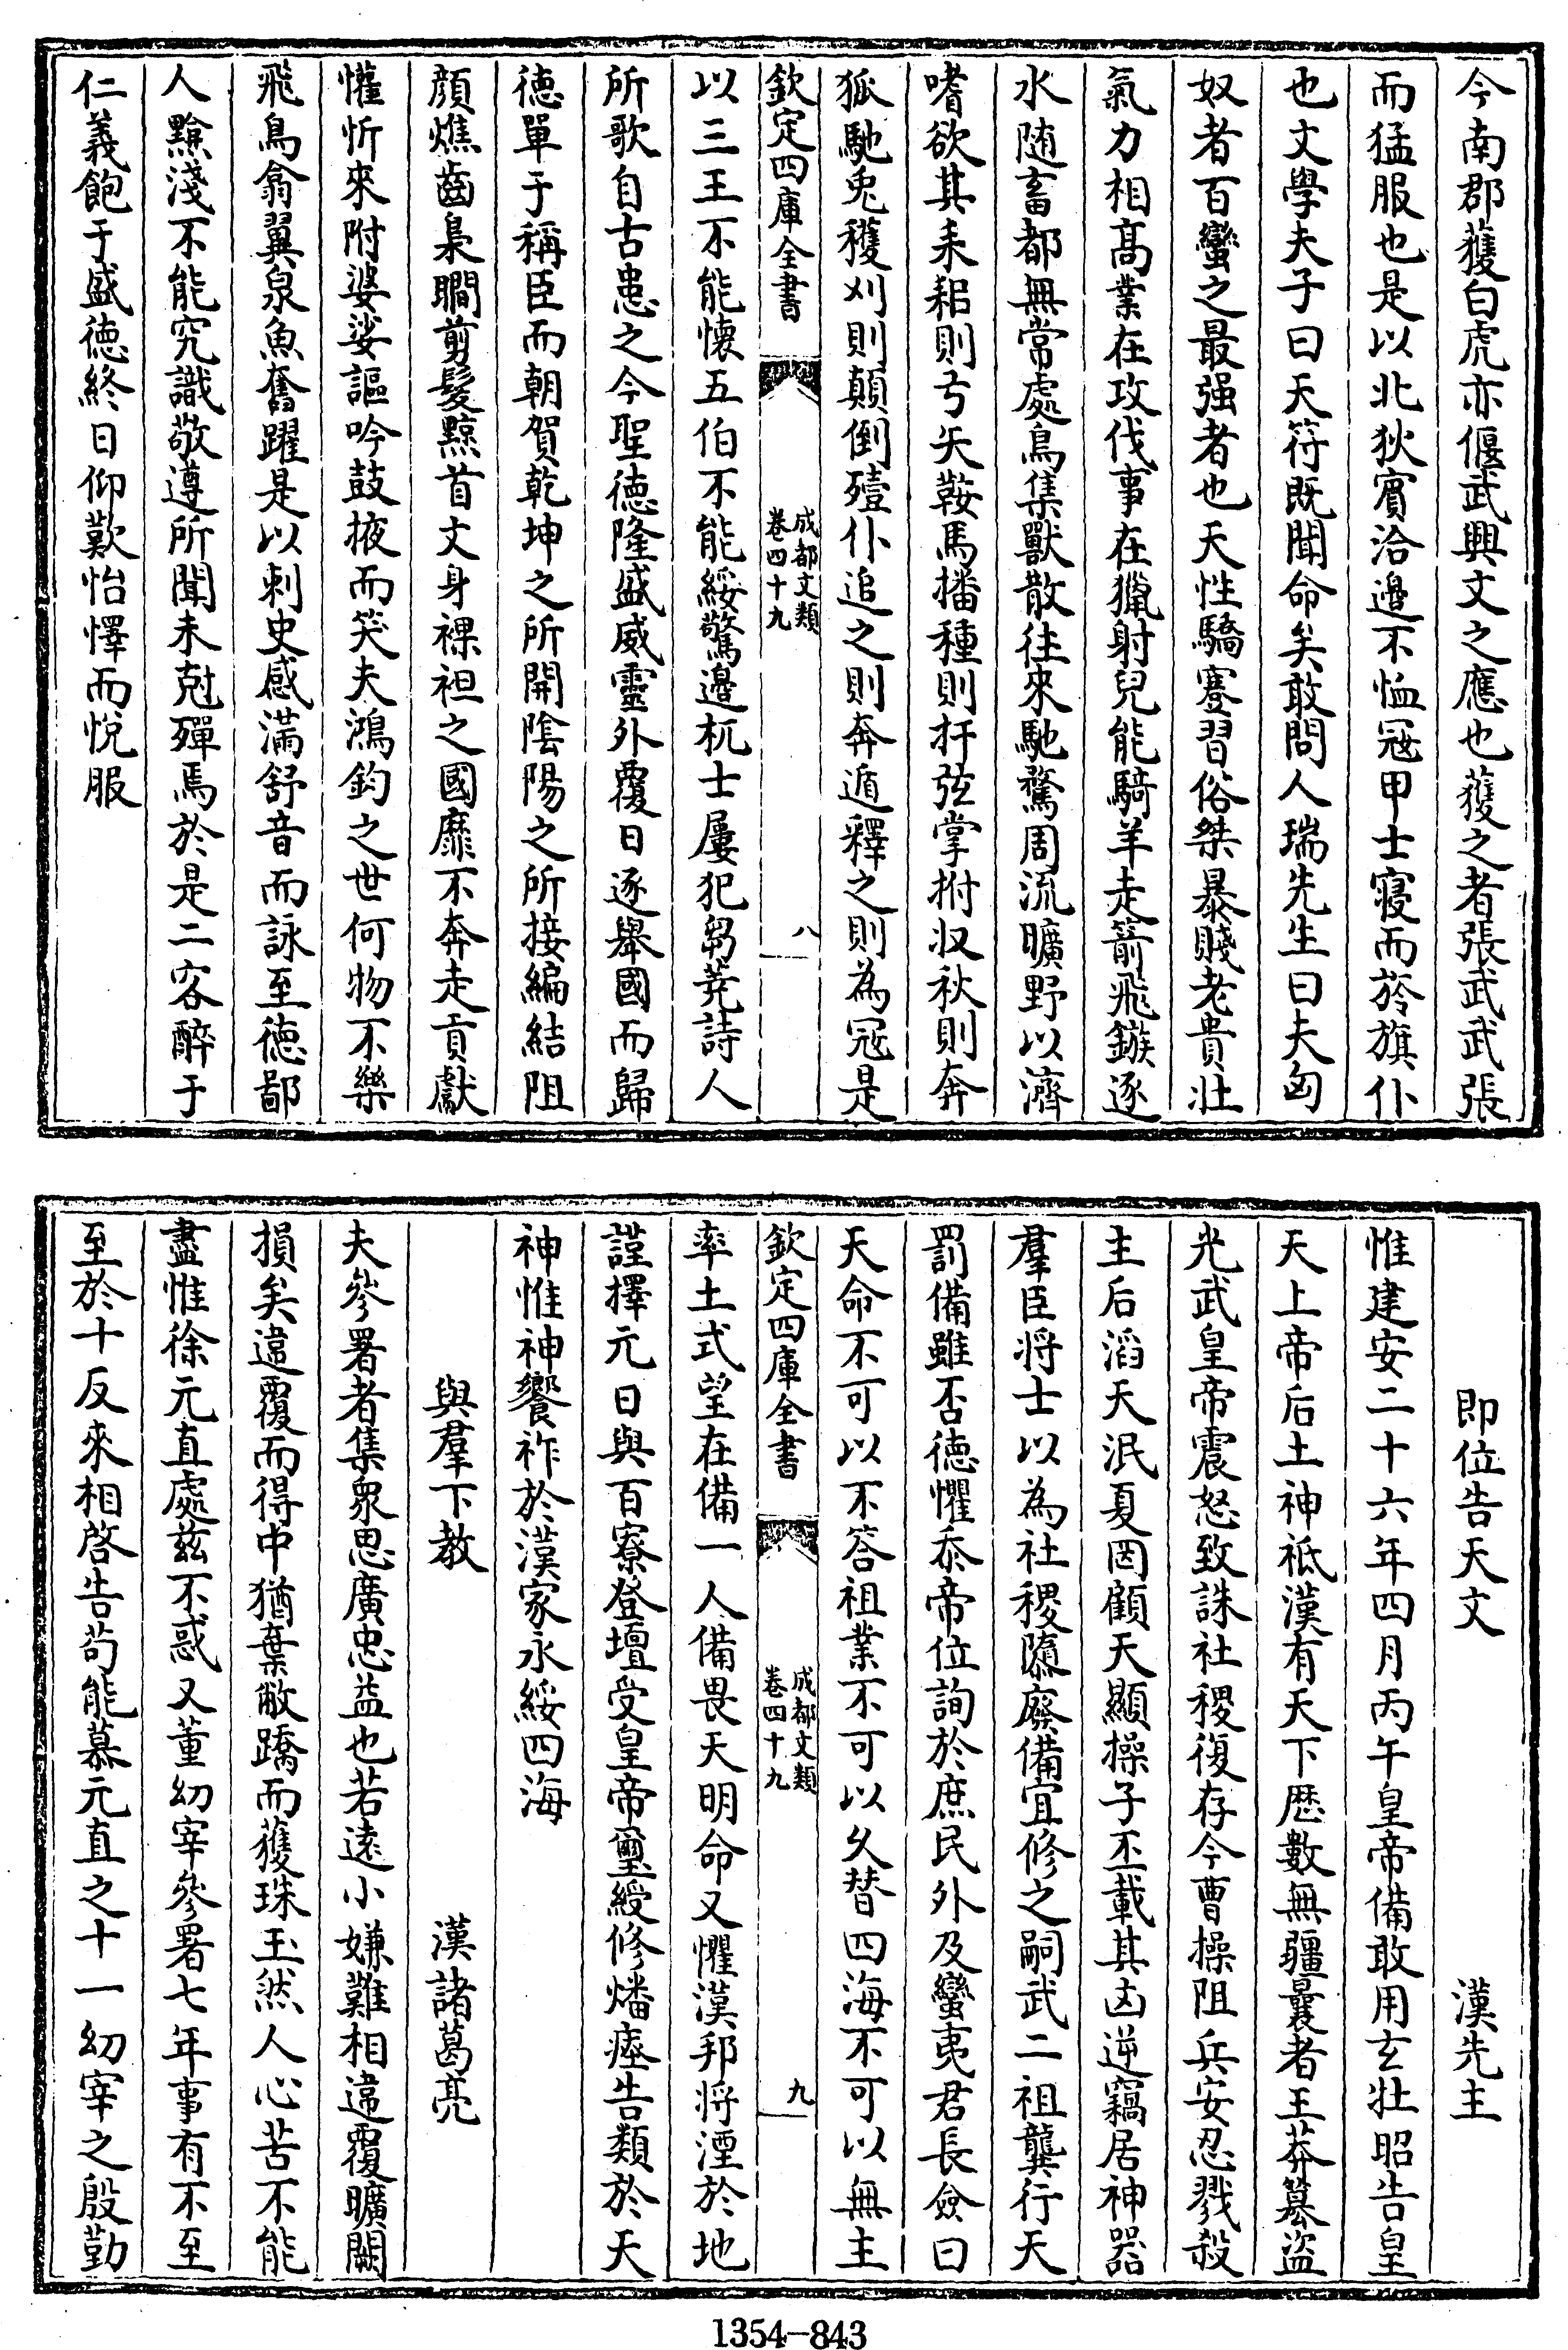 今南郡蒦白虎亦偃武興文之應也蒦之者張武武張
而猛服也是以北狄賓洽邊不恤冦甲士寝而旍旗仆
也文學夫子曰天符既聞命矣敢問人瑞先生曰夫匈
奴者百蠻之最强者也天性驕蹇習俗桀暴賤老貴壮
氣力相髙業在攻伐事在獵射兒能騎羊走箭飛鏃逐
水随畜都無常處鳥集獸散往來馳騖周流曠野以濟
嗜欲其耒耜則弓矢鞍馬播種則扞弦掌拊収秋則奔
狐馳兎穫刈則顛倒殪仆追之則奔遁釋之則為冦是
欽定四庫全書
成都文類
卷四十九
八
以三王不能懐五伯不能綏驚邊杌士屢犯芻蕘詩人
所歌自古患之今聖徳隆盛威靈外覆日逐舉國而歸
徳單于稱臣而朝賀乾坤之所開陰陽之所接編結阻
顔燋齒梟瞷剪髮黥首丈身裸袒之國靡不奔走貢獻
懽忻來附婆娑謳吟鼓掖而笑夫鴻鈞之世何物不樂
飛鳥翕翼泉魚奮躍是以刺史感滿舒音而詠至徳鄙
人黭淺不能究識敬遵所聞未尅殫焉於是二客醉于
仁義飽于盛徳終日仰歎怡懌而悦服
即位告天文
漢先主
惟建安二十六年四月丙午皇帝備敢用玄壮昭告皇
天上帝后土神祗漢有天下歴數無疆曩者王莽簒盜
光武皇帝震怒致誅社稷復存今曹操阻兵安忍戮殺
主后滔天泯夏罔顧天顯操子丕載其凶逆竊居神器
羣臣将士以為社稷隳廢備宜修之嗣武二祖龔行天
罰備雖否徳懼忝帝位詢於庶民外及蠻夷君長僉曰
天命不可以不答祖業不可以乆替四海不可以無主
欽定四庫全書
成都文類
卷四十九
九
率土式望在備一人備畏天明命又懼漢邦将湮於地
謹擇元日與百寮登壇受皇帝璽綬修燔瘞告類於天
神惟神饗祚於漢家永綏四海
與羣下教
漢諸葛亮
夫參署者集衆思廣忠益也若逺小嫌難相違覆曠闕
損矣違覆而得中猶棄敝蹻而獲珠玉然人心苦不能
盡惟徐元直處兹不惑又董幼宰參署七年事有不至
至於十反來相啓告茍能慕元直之十一幼宰之殷勤
1354—843